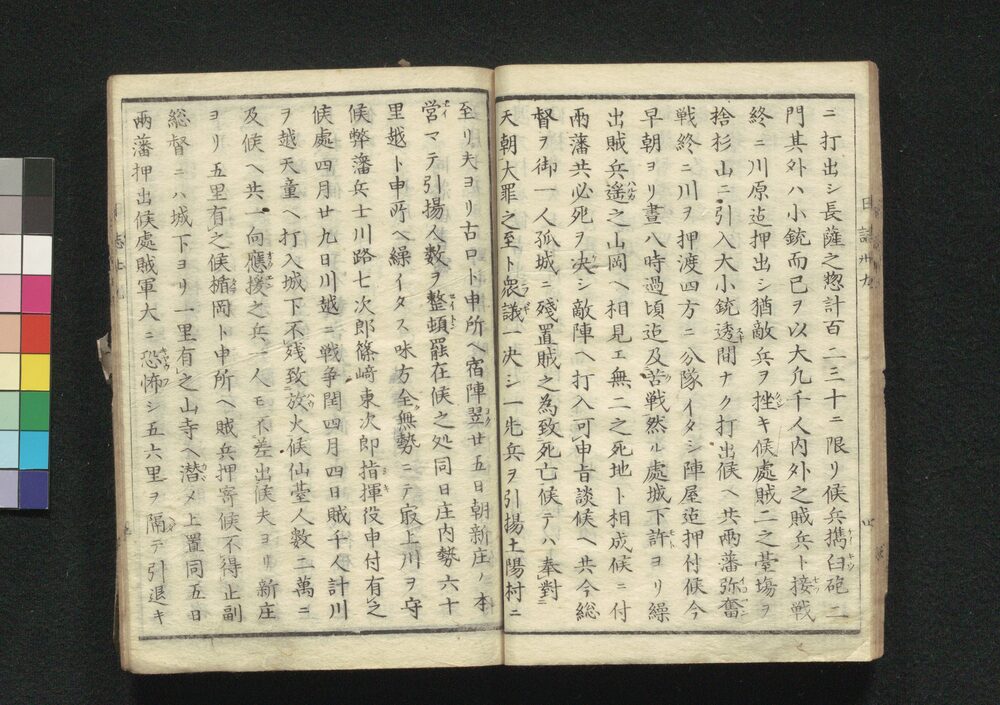 ニ打出シ長薩之惣計百二三十ニ限リ候兵携臼砲二
門其外ハ小銃而已ヲ以大凡千人内外之賊兵ト接戦
終ニ川原迠押出シ猶敵兵ヲ挫キ候處賊二之臺塲ヲ
捨杉山ニ引入大小銃透間ナク打出候ヘ共兩藩弥奮
戦終ニ川ヲ押渡四方ニ分隊イタシ陣屋迠押付候今
早朝ヨリ晝八時過頃迠及苦戦然ル處城下許ヨリ繰
出賊兵遙之山岡ヘ相見エ無二之死地ト相成候ニ付
兩藩共必死ヲ决シ敵陣ヘ打入可申旨談候ヘ共今総
督ヲ御一人孤城ニ殘置賊之為致死亡候テハ奉對
天朝大罪之至ト衆議一决シ一先兵ヲ引揚土陽村ニ
至リ夫ヨリ古口ト申所ヘ宿陣翌廿五日朝新庄ノ本
営マテ引揚人数ヲ整頓罷在候之処同日庄内勢六十
里越ト申所ヘ繰イタス味方全無勢ニテ㝡上川ヲ守
候弊藩兵士川路七次郎篠﨑東次郎指揮役申付有之
候處四月廿九日川越ニ戦争閏四月四日賊千人計川
ヲ越天童ヘ打入城下不殘致放火候仙臺人数二萬ニ
及候ヘ共一向應援之兵一人モ不差出候夫ヨリ新庄
ヨリ五里有之候楯岡ト申所ヘ賊兵押寄候不得止副
総督ニハ城下ヨリ一里有之山寺ヘ潜メ上置同五日
兩藩押出候處賊軍大ニ恐怖シ五六里ヲ隔テ引退キ